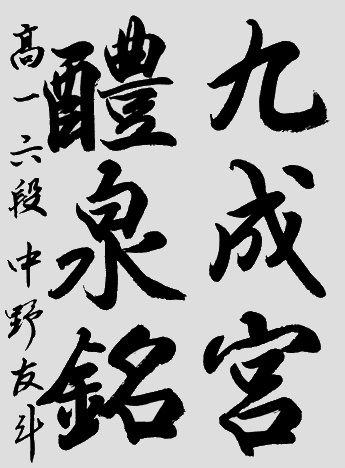 九成宮
醴泉銘
高一六段中野友斗